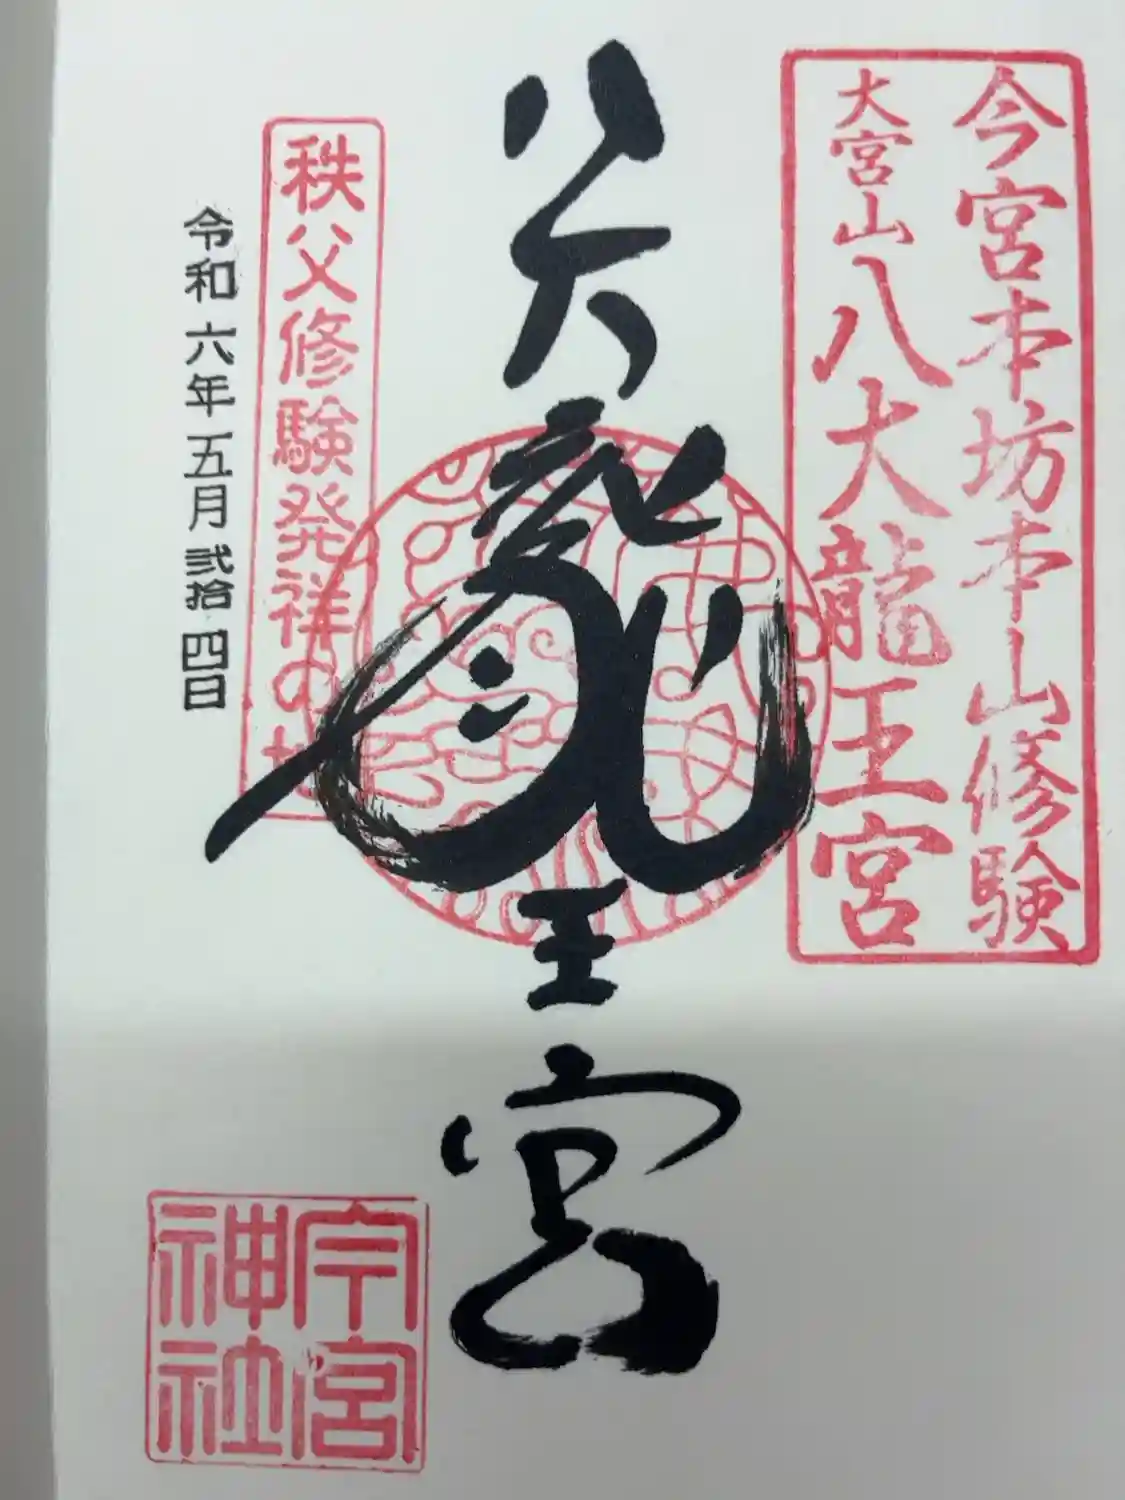 今宮本坊本山修験
大宮山八大龍王宮
八大龍王宮
秩父修験発祥の地
令和六年五月弐拾四日
今宮
神社